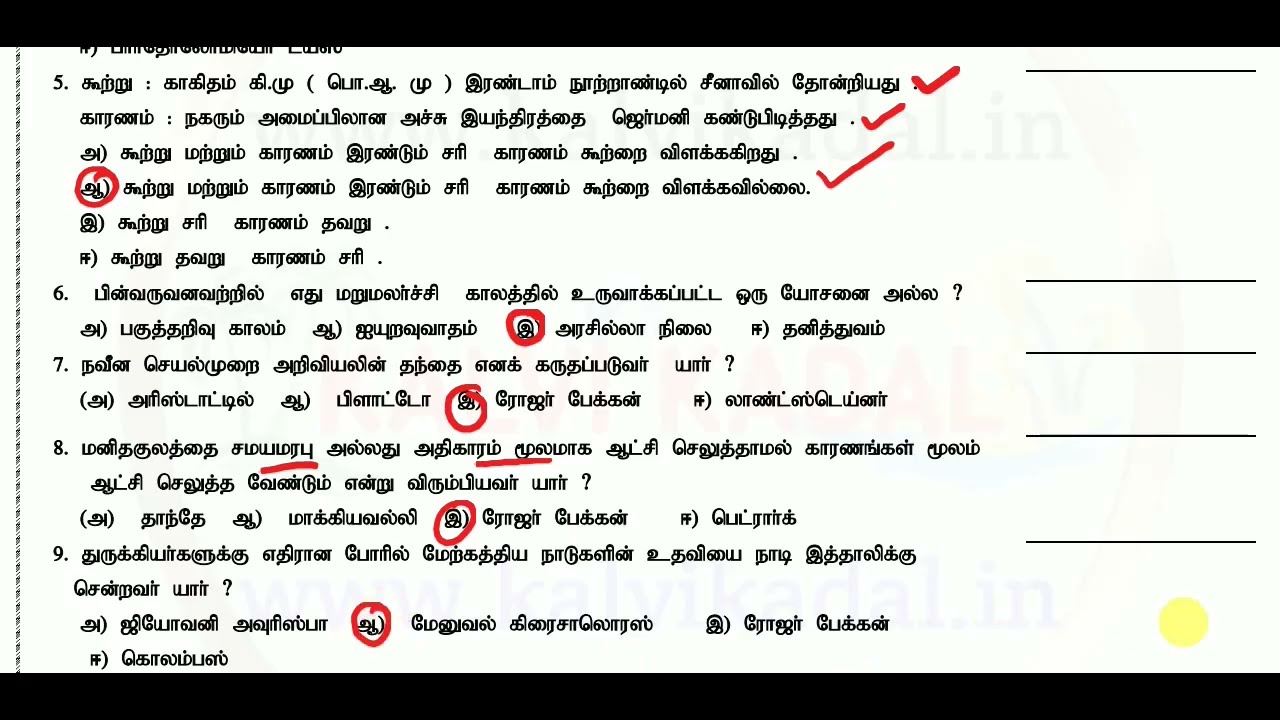 ஈ) பார்தோலோமியோ டயஸ்
5. கூற்று : காகிதம் கி.மு ( பொ.ஆ. மு ) இரண்டாம் நூற்றாண்டில் சீனாவில் தோன்றியது .
காரணம் : நகரும் அமைப்பிலான அச்சு இயந்திரத்தை ஜெர்மனி கண்டுபிடித்தது .
அ) கூற்று மற்றும் காரணம் இரண்டும் சரி காரணம் கூற்றை விளக்ககிறது .
ஆ) கூற்று மற்றும் காரணம் இரண்டும் சரி காரணம் கூற்றை விளக்கவில்லை.
இ) கூற்று சரி காரணம் தவறு .
ஈ) கூற்று தவறு காரணம் சரி .
6. பின்வருவனவற்றில் எது மறுமலர்ச்சி காலத்தில் உருவாக்கப்பட்ட ஒரு யோசனை அல்ல ?
அ) பகுத்தறிவு காலம் ஆ) ஐயுறவுவாதம் இ) அரசில்லா நிலை ஈ) தனித்துவம்
7. நவீன செயல்முறை அறிவியலின் தந்தை எனக் கருதப்படுவர் யார் ?
(அ) அரிஸ்டாட்டில் ஆ) பிளாட்டோ இ) ரோஜர் பேக்கன் ஈ) லாண்ட்ஸ்டெய்னர்
8. மனிதகுலத்தை சமயமரபு அல்லது அதிகாரம் மூலமாக ஆட்சி செலுத்தாமல் காரணங்கள் மூலம்
ஆட்சி செலுத்த வேண்டும் என்று விரும்பியவர் யார் ?
(அ) தாந்தே ஆ) மாக்கியவல்லி இ) ரோஜர் பேக்கன் ஈ) பெட்ரார்க்
9. துருக்கியர்களுக்கு எதிரான போரில் மேற்கத்திய நாடுகளின் உதவியை நாடி இத்தாலிக்கு
சென்றவர் யார் ?
அ) ஜியோவனி அவுரிஸ்பா ஆ) மேனுவல் கிரைசாலொரஸ் இ) ரோஜர் பேக்கன்
ஈ) கொலம்பஸ்
www.kalvikadal.in
KALVI KADAL
www.kalvikadal.in